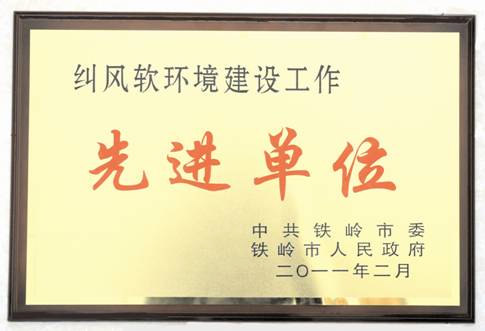 纠风软环境建设工作
先进单位
中共铁岭市委
铁岭市人民政府
二〇一一年二月